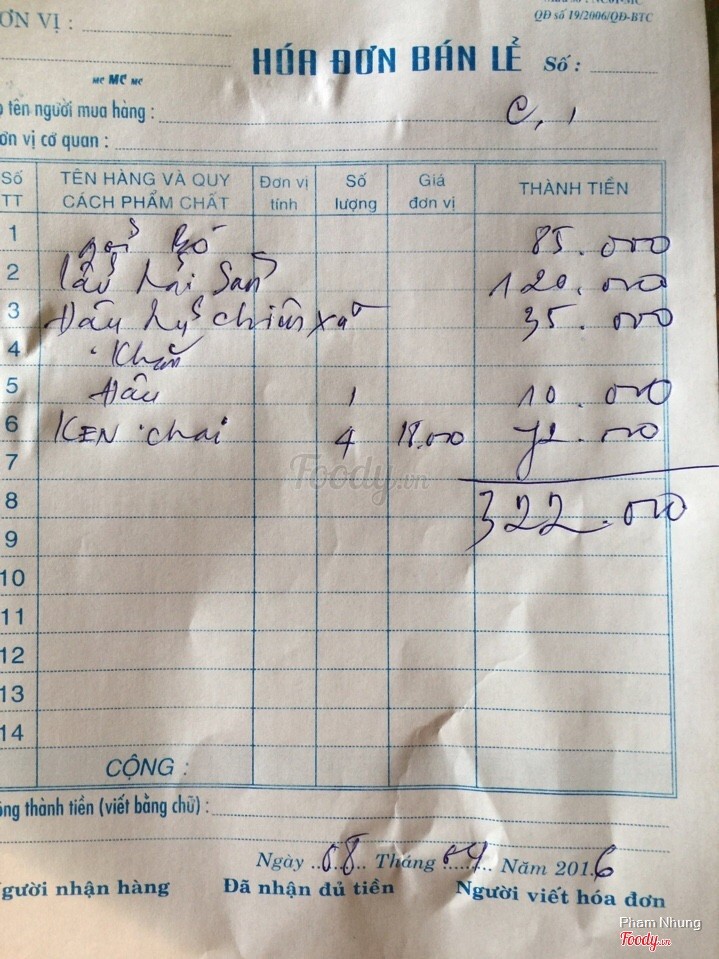 QĐ số 19/2006/QĐ-BTC
ƠN VỊ :
HÓA ĐƠN BÁN LẺ Số :
MC MC MC
tên người mua hàng :
ơn vị cơ quan :
Số TT TÊN HÀNG VÀ QUY CÁCH PHẨM CHẤT Đơn vị tính Số lượng Giá đơn vị THÀNH TIỀN
1 gỏi bò 85.000
2 lẩu hải sản 120.000
3 Đậu hủ chiên xả 35.000
4 Khăn
5 Đậu 1 10.000
6 KEN chai 4 18.000 72.000
7
8 322.000
9
10
11
12
13
14
CỘNG :
ộng thành tiền (viết bằng chữ) :
Ngày 08 Tháng 04 Năm 2016
gười nhận hàng Đã nhận đủ tiền Người viết hóa đơn
Foody.vn
Pham Nhung
Foody.vn